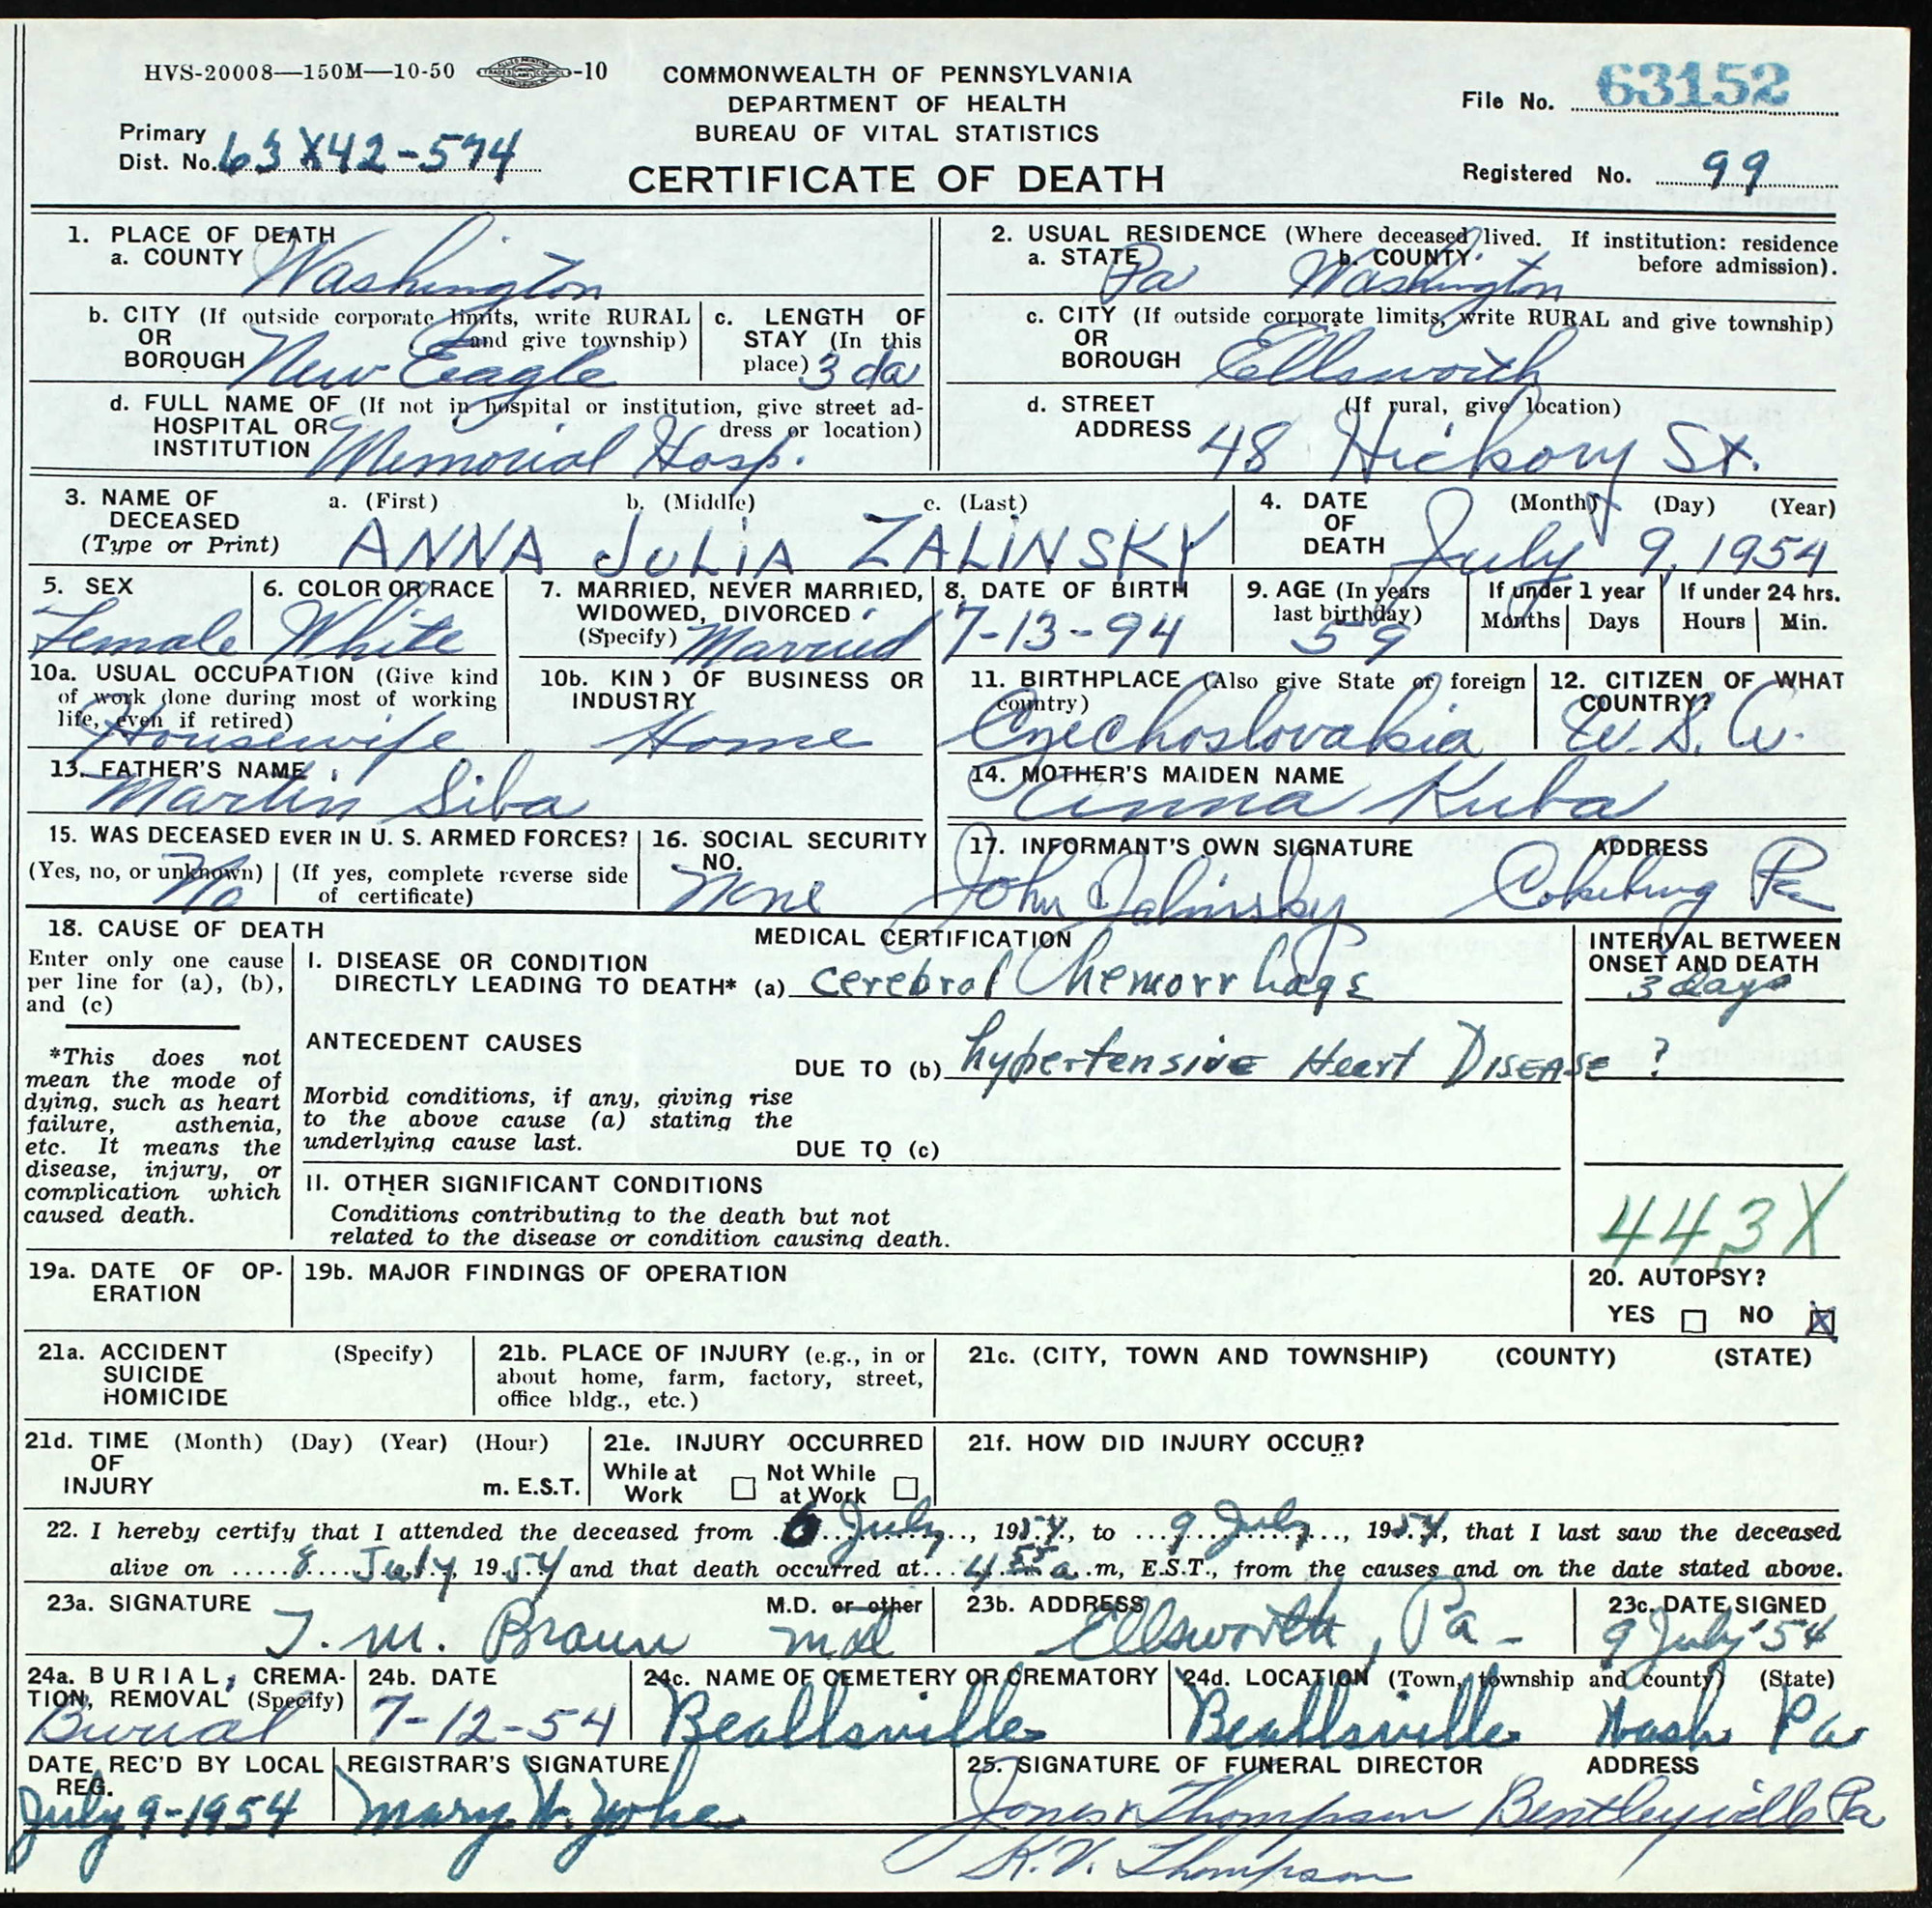 HVS-20008—150M—10-50 -10
COMMONWEALTH OF PENNSYLVANIA
DEPARTMENT OF HEALTH
BUREAU OF VITAL STATISTICS
CERTIFICATE OF DEATH
File No. 63152
Primary
Dist. No. 63X42-574
Registered No. 99
1. PLACE OF DEATH
a. COUNTY Washington
b. CITY (If outside corporate limits, write RURAL
OR and give township)
BOROUGH New Eagle
c. LENGTH OF
STAY (In this
place) 3 da
d. FULL NAME OF (If not in hospital or institution, give street ad-
HOSPITAL OR dress or location)
INSTITUTION Memorial Hosp.
2. USUAL RESIDENCE (Where deceased lived. If institution: residence
before admission).
a. STATE Pa b. COUNTY Washington
c. CITY (If outside corporate limits, write RURAL and give township)
OR
BOROUGH Ellsworth
d. STREET (If rural, give location)
ADDRESS 48 Hickory St.
3. NAME OF a. (First) b. (Middle) c. (Last)
DECEASED
(Type or Print) ANNA JULIA ZALINSKY
4. DATE (Month) (Day) (Year)
OF
DEATH July 9, 1954
5. SEX
Female
6. COLOR OR RACE
White
7. MARRIED, NEVER MARRIED,
WIDOWED, DIVORCED
(Specify) Married
8. DATE OF BIRTH
7-13-94
9. AGE (In years
last birthday)
59
If under 1 year
Months Days
If under 24 hrs.
Hours Min.
10a. USUAL OCCUPATION (Give kind
of work done during most of working
life, even if retired)
Housewife
10b. KIND OF BUSINESS OR
INDUSTRY
Home
11. BIRTHPLACE (Also give State or foreign
country)
Czechoslovakia
12. CITIZEN OF WHAT
COUNTRY?
U.S.A.
13. FATHER'S NAME
Martin Siba
14. MOTHER'S MAIDEN NAME
Anna Kuba
15. WAS DECEASED EVER IN U. S. ARMED FORCES?
(Yes, no, or unknown) (If yes, complete reverse side
of certificate)
No
16. SOCIAL SECURITY
NO.
None
17. INFORMANT'S OWN SIGNATURE ADDRESS
John Zalinsky Cokeburg Pa
18. CAUSE OF DEATH
Enter only one cause
per line for (a), (b),
and (c)
*This does not
mean the mode of
dying, such as heart
failure, asthenia,
etc. It means the
disease, injury, or
complication which
caused death.
MEDICAL CERTIFICATION
I. DISEASE OR CONDITION
DIRECTLY LEADING TO DEATH* (a) Cerebral hemorrhage
ANTECEDENT CAUSES
DUE TO (b) hypertensive Heart Disease ?
Morbid conditions, if any, giving rise
to the above cause (a) stating the
underlying cause last.
DUE TO (c)
II. OTHER SIGNIFICANT CONDITIONS
Conditions contributing to the death but not
related to the disease or condition causing death.
INTERVAL BETWEEN
ONSET AND DEATH
3 days
443X
19a. DATE OF OP-
ERATION
19b. MAJOR FINDINGS OF OPERATION
20. AUTOPSY?
YES ☐ NO ☒
21a. ACCIDENT (Specify)
SUICIDE
HOMICIDE
21b. PLACE OF INJURY (e.g., in or
about home, farm, factory, street,
office bldg., etc.)
21c. (CITY, TOWN AND TOWNSHIP) (COUNTY) (STATE)
21d. TIME (Month) (Day) (Year) (Hour)
OF
INJURY m. E.S.T.
21e. INJURY OCCURRED
While at Work ☐ Not While at Work ☐
21f. HOW DID INJURY OCCUR?
22. I hereby certify that I attended the deceased from 6 July, 1954, to 9 July, 1954, that I last saw the deceased
alive on 8 July, 1954 and that death occurred at 4 55 a. m, E.S.T., from the causes and on the date stated above.
23a. SIGNATURE M.D. or other
T. M. Braun md
23b. ADDRESS
Ellsworth, Pa
23c. DATE SIGNED
9 July '54
24a. BURIAL, CREMA-
TION, REMOVAL (Specify)
Burial
24b. DATE
7-12-54
24c. NAME OF CEMETERY OR CREMATORY
Beallsville
24d. LOCATION (Town, township and county) (State)
Beallsville Wash Pa
DATE REC'D BY LOCAL
REG.
July 9-1954
REGISTRAR'S SIGNATURE
Mary H. Yohe
25. SIGNATURE OF FUNERAL DIRECTOR ADDRESS
Jones & Thompson Bentleyville Pa
K.V. Thompson